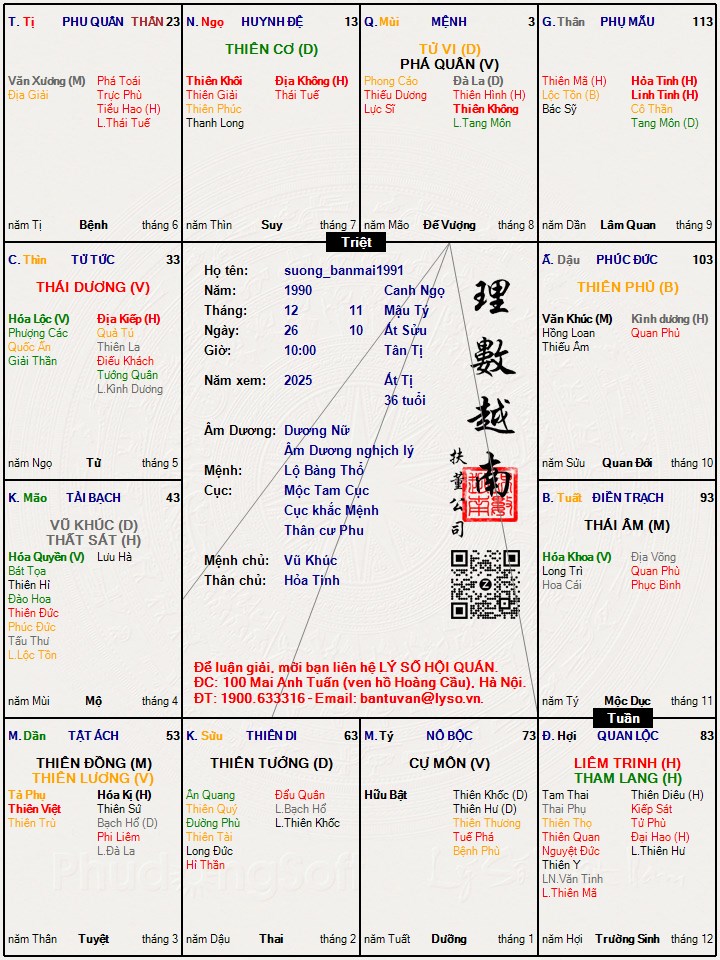 T. Tị PHU QUÂN THÂN 23
Văn Xương (M) Phá Toái
Địa Giải Trực Phù
Tiểu Hao (H)
L.Thái Tuế
năm Tị Bệnh tháng 6
N. Ngọ HUYNH ĐỆ 13
THIÊN CƠ (D)
Thiên Khôi Địa Không (H)
Thiên Giải Thái Tuế
Thiên Phúc
Thanh Long
năm Thìn Suy tháng 7
Q. Mùi MỆNH 3
TỬ VI (D)
PHÁ QUÂN (V)
Phong Cáo Đà La (D)
Thiếu Dương Thiên Hình (H)
Lực Sĩ Thiên Không
L.Tang Môn
năm Mão Đế Vượng tháng 8
G. Thân PHỤ MẪU 113
Thiên Mã (H) Hỏa Tinh (H)
Lộc Tồn (B) Linh Tinh (H)
Bác Sỹ Cô Thần
Tang Môn (D)
năm Dần Lâm Quan tháng 9
Triệt
C. Thìn TỬ TỨC 33
THÁI DƯƠNG (V)
Hóa Lộc (V) Địa Kiếp (H)
Phượng Các Quả Tú
Quốc Ấn Thiên La
Giải Thần Điếu Khách
Tướng Quân
L.Kình Dương
năm Ngọ Tử tháng 5
Họ tên: suong_banmai1991
Năm: 1990 Canh Ngọ
Tháng: 12 11 Mậu Tý
Ngày: 26 10 Ất Sửu
Giờ: 10:00 Tân Tị
Năm xem: 2025 Ất Tị
36 tuổi
Âm Dương: Dương Nữ
Âm Dương nghịch lý
Mệnh: Lộ Bàng Thổ
Cục: Mộc Tam Cục
Cục khắc Mệnh
Thân cư Phu
Mệnh chủ: Vũ Khúc
Thân chủ: Hỏa Tinh
理數越南
扶董公司
Z
Để luận giải, mời bạn liên hệ LÝ SỐ HỘI QUÁN.
ĐC: 100 Mai Anh Tuấn (ven hồ Hoàng Cầu), Hà Nội.
ĐT: 1900.633316 - Email: bantuvan@lyso.vn.
Ấ. Dậu PHÚC ĐỨC 103
THIÊN PHỦ (B)
Văn Khúc (M) Kình dương (H)
Hồng Loan Quan Phủ
Thiếu Âm
năm Sửu Quan Đới tháng 10
K. Mão TÀI BẠCH 43
VŨ KHÚC (D)
THẤT SÁT (H)
Hóa Quyền (V) Lưu Hà
Bát Tọa
Thiên Hỉ
Đào Hoa
Thiên Đức
Phúc Đức
Tấu Thư
L.Lộc Tồn
năm Mùi Mộ tháng 4
B. Tuất ĐIỀN TRẠCH 93
THÁI ÂM (M)
Hóa Khoa (V) Địa Võng
Long Trì Quan Phù
Hoa Cái Phục Binh
năm Tý Mộc Dục tháng 11
Tuần
M. Dần TẬT ÁCH 53
THIÊN ĐỒNG (M)
THIÊN LƯƠNG (V)
Tả Phụ Hóa Kị (H)
Thiên Việt Thiên Sứ
Thiên Trù Bạch Hổ (D)
Phi Liêm
L.Đà La
năm Thân Tuyệt tháng 3
K. Sửu THIÊN DI 63
THIÊN TƯỚNG (D)
Ân Quang Đẩu Quân
Thiên Quý L.Bạch Hổ
Đường Phù L.Thiên Khốc
Thiên Tài
Long Đức
Hỉ Thần
năm Dậu Thai tháng 2
M. Tý NÔ BỘC 73
CỰ MÔN (V)
Hữu Bật Thiên Khốc (D)
Thiên Hư (D)
Thiên Thương
Tuế Phá
Bệnh Phù
năm Tuất Dưỡng tháng 1
Đ. Hợi QUAN LỘC 83
LIÊM TRINH (H)
THAM LANG (H)
Tam Thai Thiên Diêu (H)
Thai Phụ Kiếp Sát
Thiên Thọ Tử Phù
Thiên Quan Đại Hao (H)
Nguyệt Đức L.Thiên Hư
Thiên Y
LN.Văn Tinh
L.Thiên Mã
năm Hợi Trường Sinh tháng 12